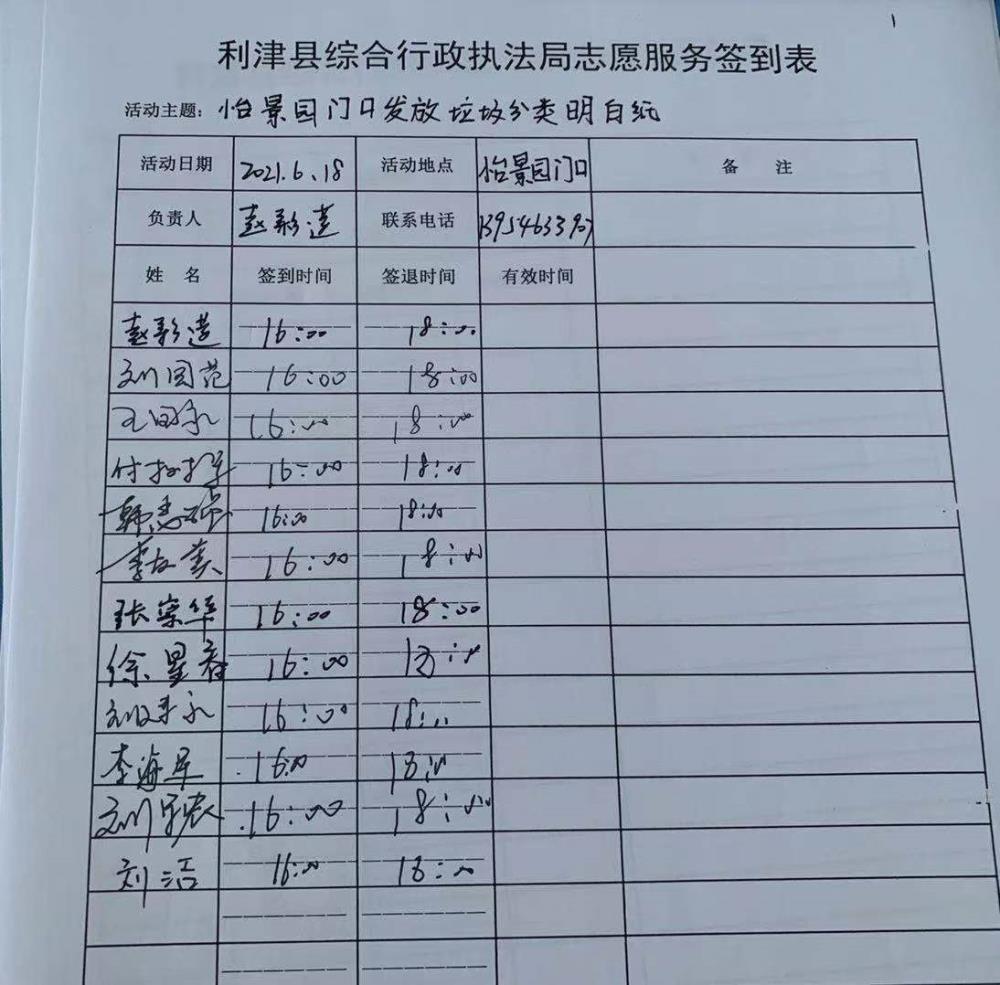 1
利津县综合行政执法局志愿服务签到表
活动主题：怡景园门口发放垃圾分类明白纸
活动日期 2021.6.18 活动地点 怡景园门口 备 注
负责人 赵彩莲 联系电话 13954633907
姓 名 签到时间 签退时间 有效时间
赵彩莲 16:00 18:00
刘国范 16:00 18:00
16:00 18:00
付 16:00 18:00
韩 16:00 18:00
李 16:00 18:00
张宗华 16:00 18:00
徐星春 16:00 18:00
16:00 18:00
李海军 16:00 18:00
刘 16:00 18:00
刘洁 16:00 18:00